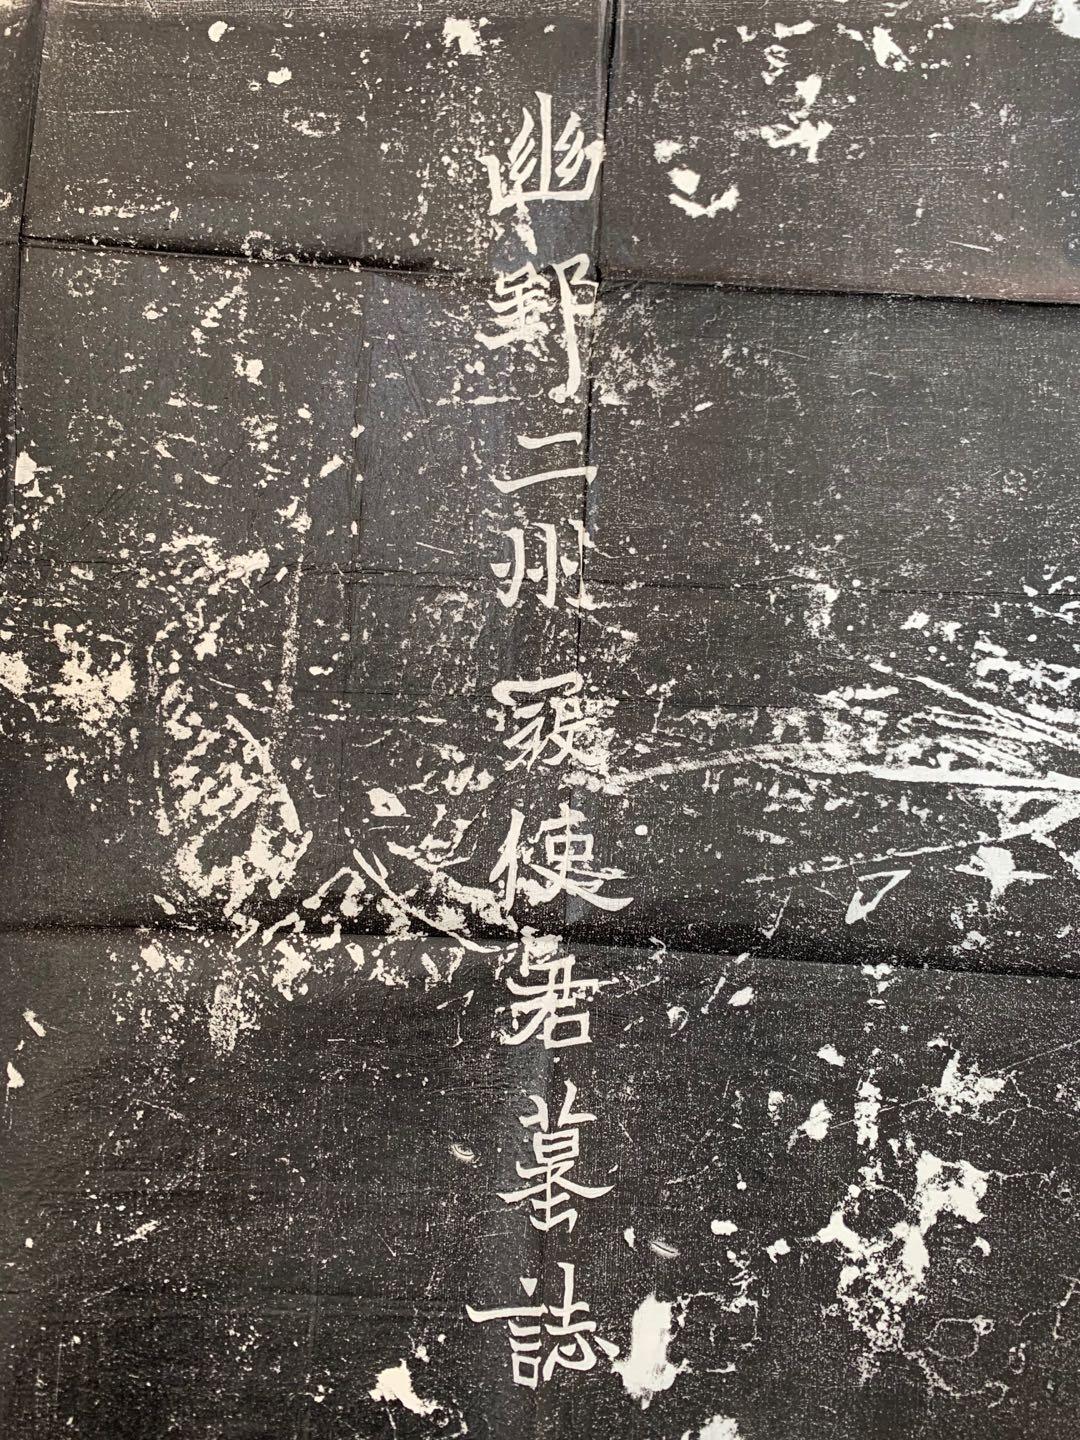 幽郢二州寇使君墓誌